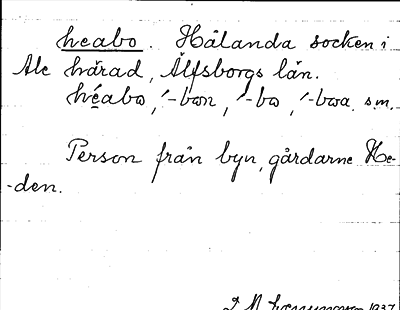 heabo. Hålanda socken i
Ale härad, Älfsborgs län.
héabo, ´-bon, ´-bo, ´-boa. s.m.
Person från byn, gårdarne He-
-den.
1937